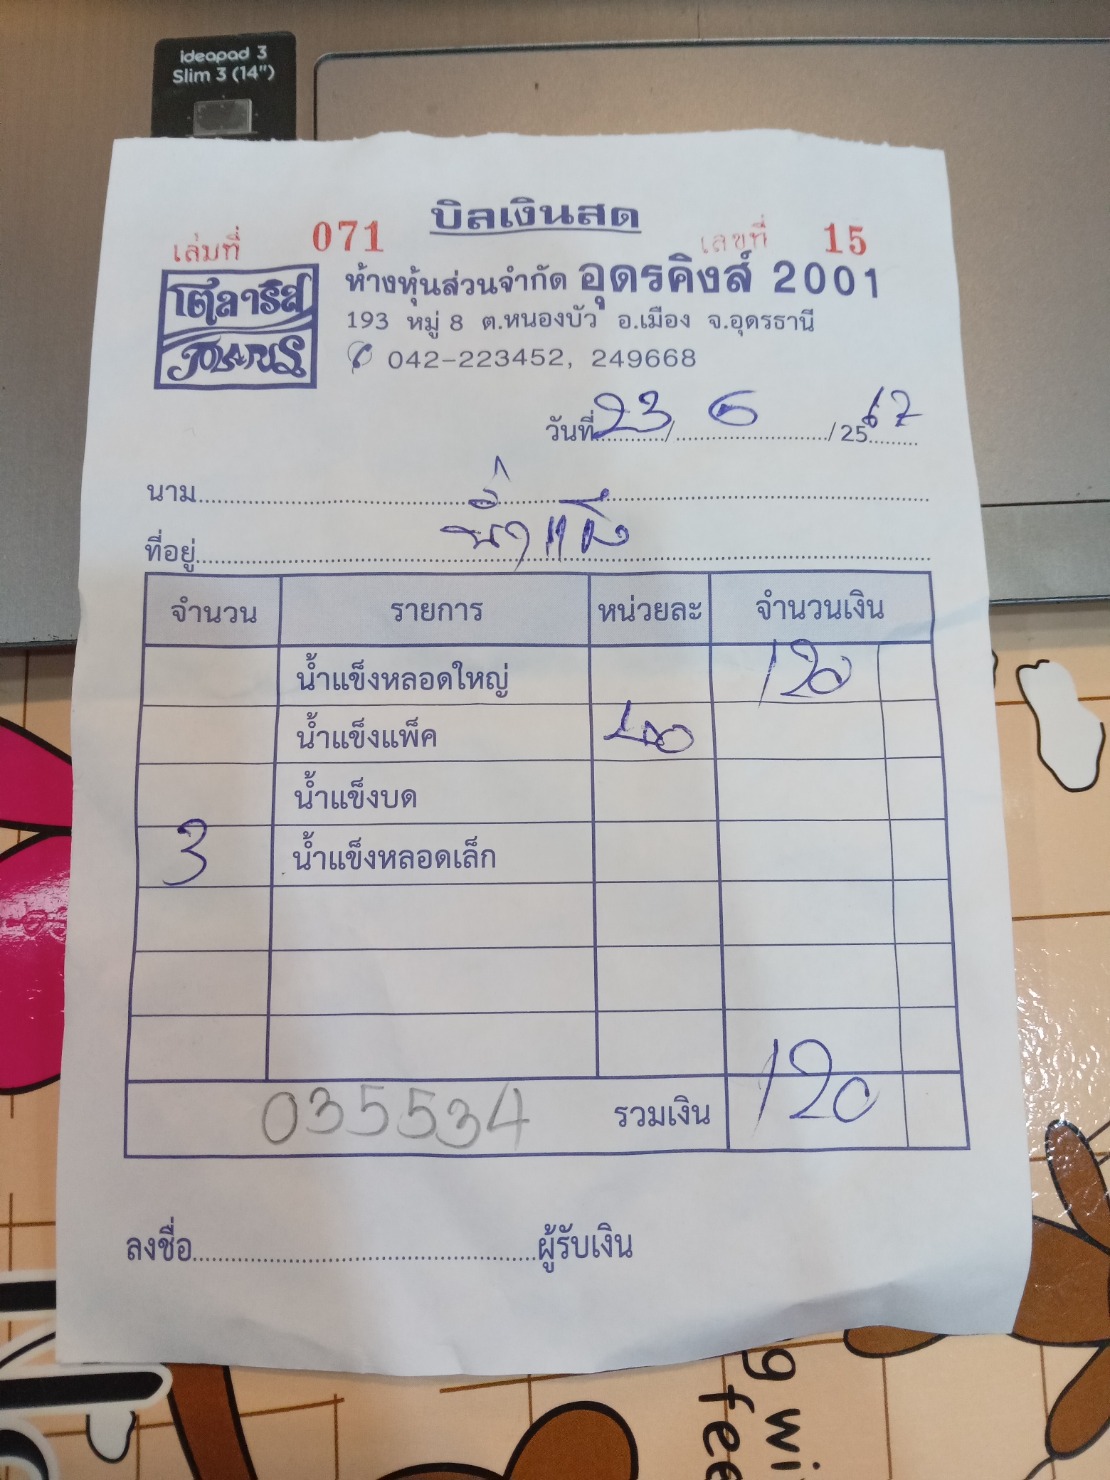 ideapad 3
Slim 3 (14")
บิลเงินสด
เล่มที่ 071 เลขที่ 15
โพลาริส
POLARIS
ห้างหุ้นส่วนจำกัด อุดรคิงส์ 2001
193 หมู่ 8 ต.หนองบัว อ.เมือง จ.อุดรธานี
042-223452, 249668
วันที่ 23 / 6 / 2567
นาม
ที่อยู่
จำนวน รายการ หน่วยละ จำนวนเงิน
น้ำแข็งหลอดใหญ่ 120
น้ำแข็งแพ็ค 40
น้ำแข็งบด
3 น้ำแข็งหลอดเล็ก
035534 รวมเงิน 120
ลงชื่อ ผู้รับเงิน
g wi
fee